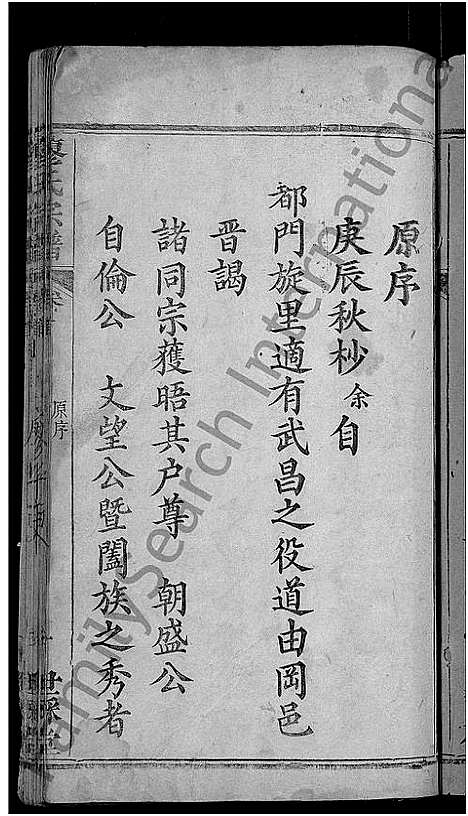 原序
庚辰秋杪余自
都門旋里適有武昌之役道由岡邑
晋謁
諸同宗獲晤其户尊 朝盛公
自倫公 文望公暨闔族之秀者
廖氏宗譜 卷首
原序
FamilySearch International